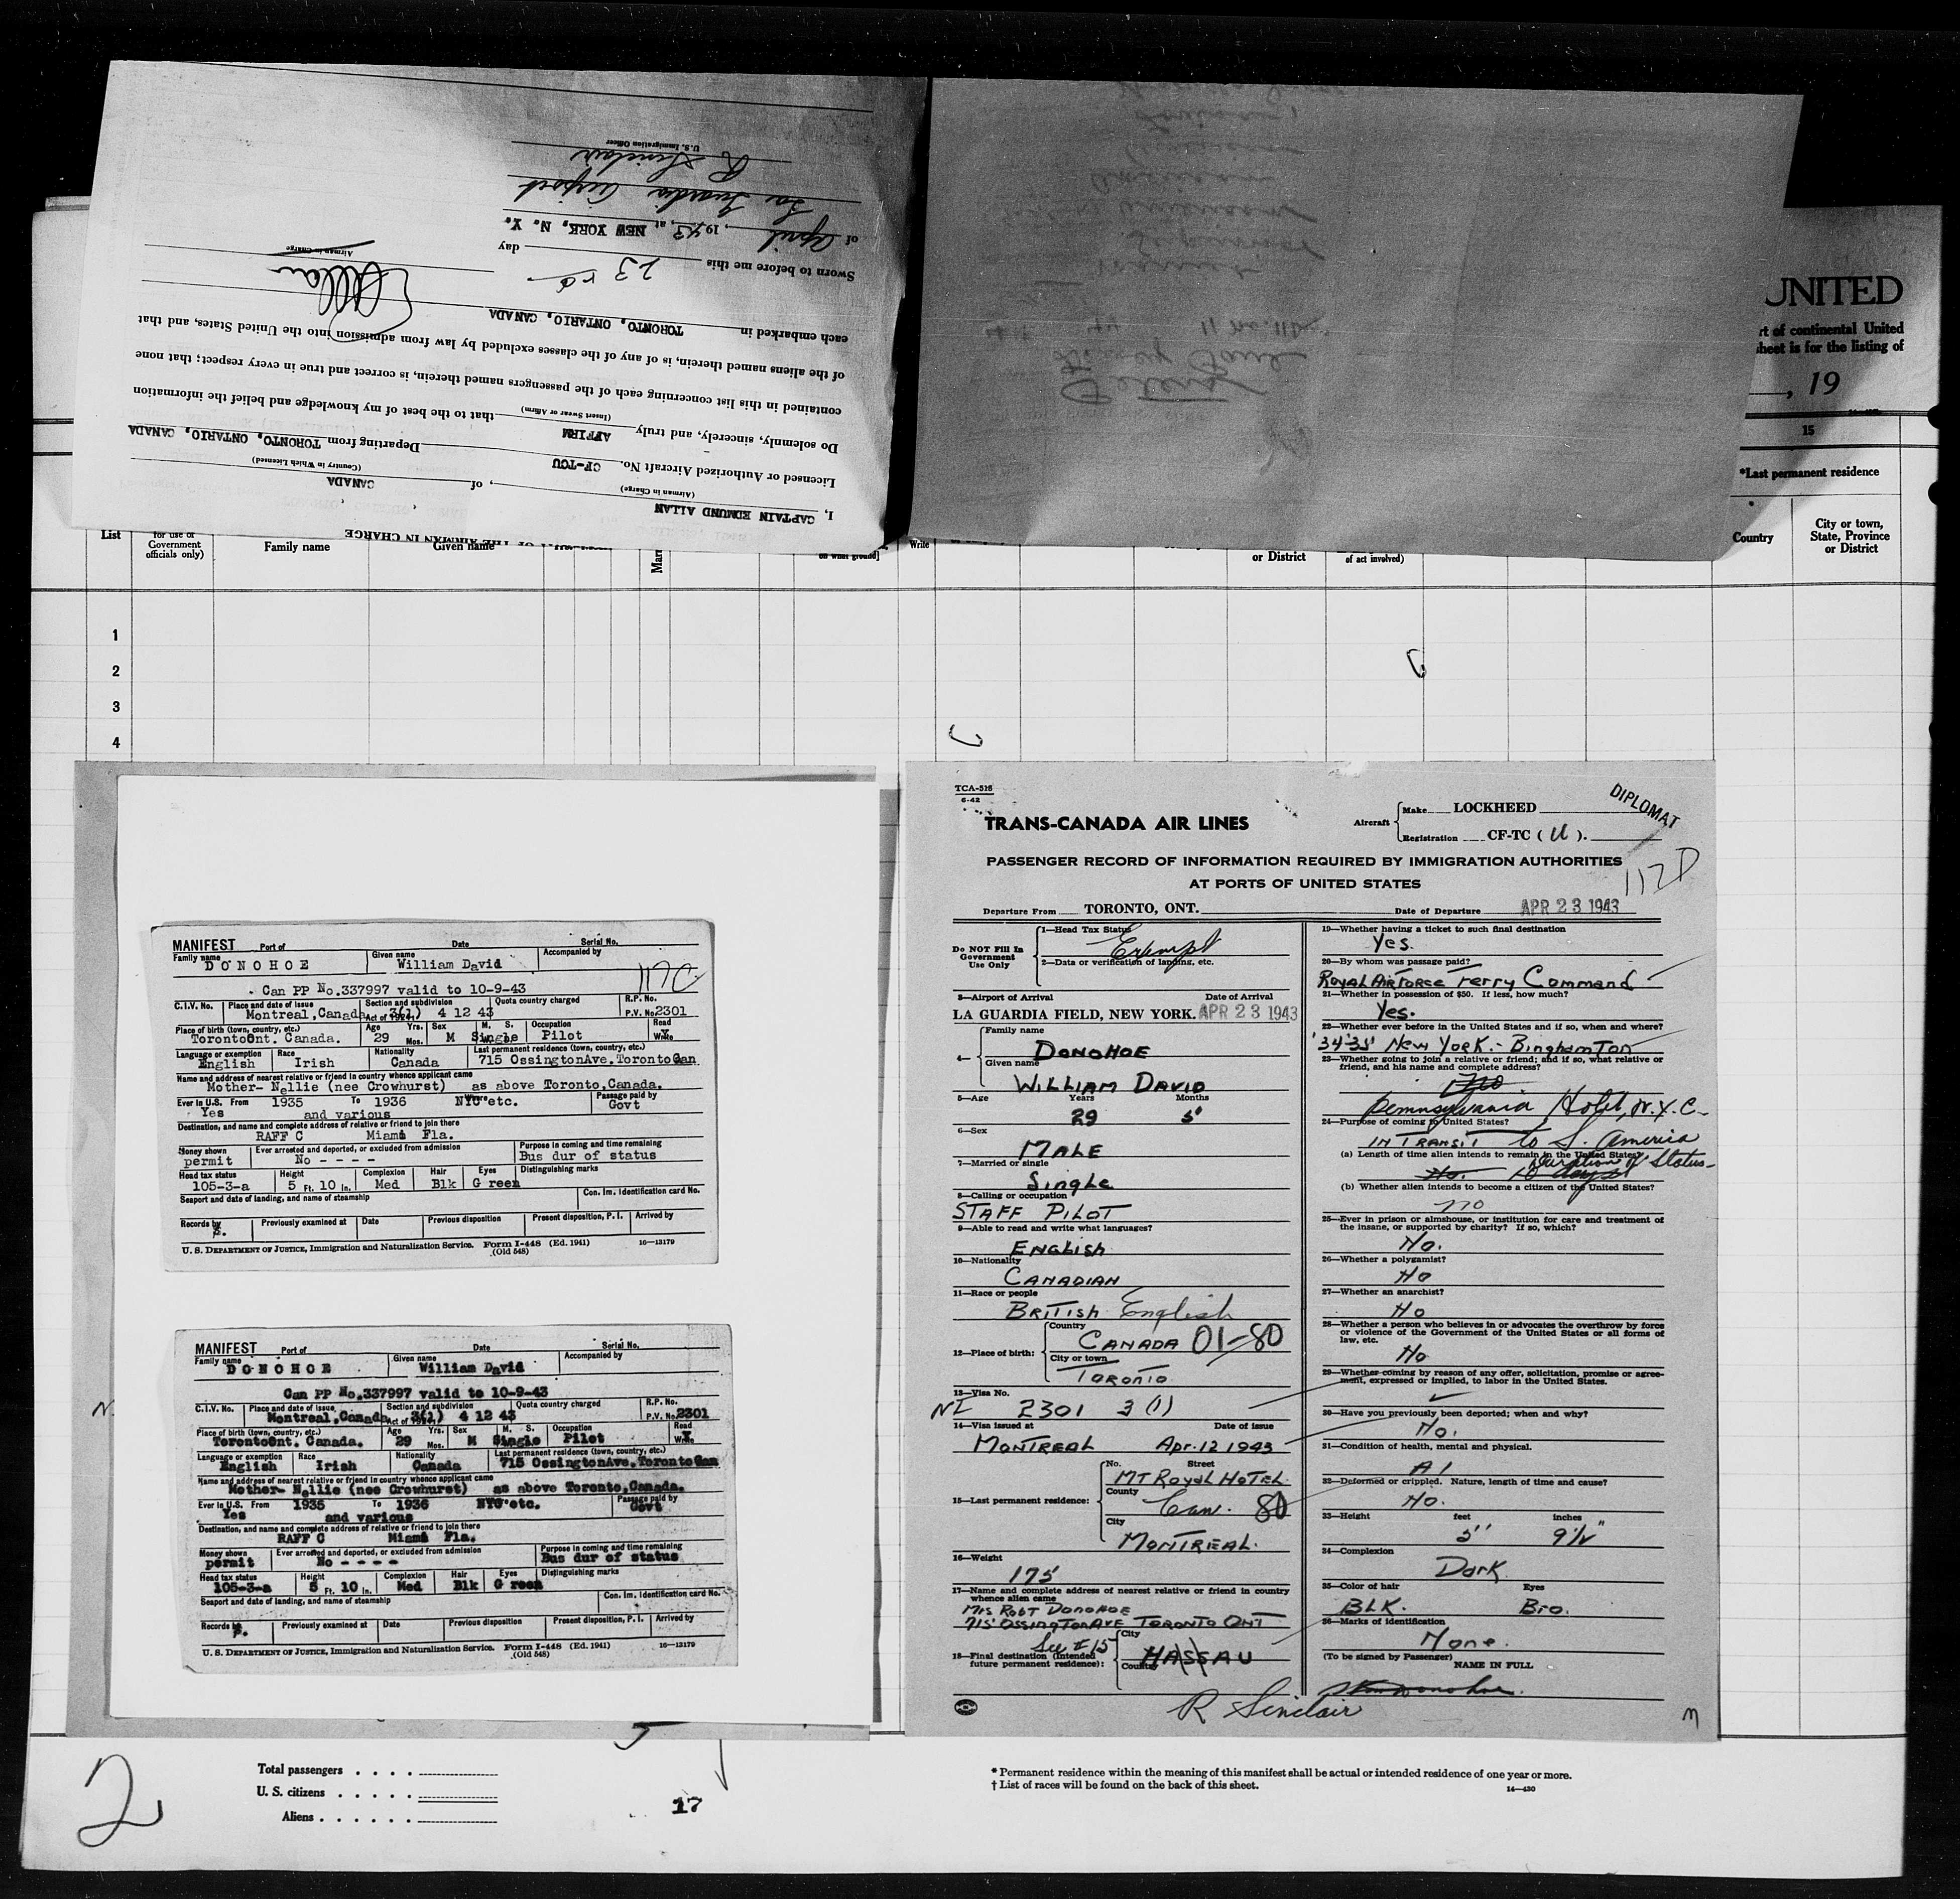 I, CAPTAIN EDMUND ALLAN, of CANADA
(Airman in Charge) (Country in Which Licensed)
Licensed or Authorized Aircraft No. CF-TCU Departing from TORONTO, ONTARIO, CANADA
Do solemnly, sincerely, and truly AFFIRM that to the best of my knowledge and belief the information
(Insert Swear or Affirm)
contained in this list concerning each of the passengers named therein, is correct and true in every respect; that none
of the aliens named therein, is of any of the classes excluded by law from admission into the United States, and that
each embarked in TORONTO, ONTARIO, CANADA
Airman in Charge
Sworn to before me this 23rd day
of April, 1943, at NEW YORK, N. Y.
La Guardia Airport
R Sinclair
U.S. Immigration Officer
UNITED
rt of continental United
sheet is for the listing of
, 19
15
*Last permanent residence
Country
City or town, State, Province or District
List
for use of Government officials only)
Family name
Given name
on what ground]
Write
or District
of act involved)
1
2
3
4
MANIFEST Port of Date Serial No.
Family name DONOHOE Given name William David Accompanied by
117C
Can PP No.337997 valid to 10-9-43
C.I.V. No. Place and date of issue Section and subdivision Quota country charged R.P. No.
Montreal,Canada Act of 1924 3(1) 4 12 43 P.V. No. 2301
Place of birth (town, country, etc.) Age Yrs. Sex M. S. Occupation Read
TorontoOnt. Canada. 29 Mos. M Single Pilot Write X
Language or exemption Race Nationality Last permanent residence (town, country, etc.)
English Irish Canada 715 OssingtonAve.TorontoCan
Name and address of nearest relative or friend in country whence applicant came
Mother- Nellie (nee Crowhurst) as above Toronto,Canada.
Ever in U.S. From 1935 To 1936 Where NYC etc. Passage paid by
Yes and various Govt
Destination, and name and complete address of relative or friend to join there
RAFF C Miami Fla.
Money shown Ever arrested and deported, or excluded from admission Purpose in coming and time remaining
permit No - - - - Bus dur of status
Head tax status Height Complexion Hair Eyes Distinguishing marks
105-3-a 5 Ft. 10 In. Med Blk Green
Seaport and date of landing, and name of steamship Con. Im. Identification card No.
Records by Previously examined at Date Previous disposition Present disposition, P. I. Arrived by
U. S. DEPARTMENT OF JUSTICE, Immigration and Naturalization Service. Form I-448 (Ed. 1941) 16—13179
(Old 548)
MANIFEST Port of Date Serial No.
Family name DONOHOE Given name William David Accompanied by
Can PP No.337997 valid to 10-9-43
C.I.V. No. Place and date of issue Section and subdivision Quota country charged R.P. No.
Montreal,Canada Act of 1924 3(1) 4 12 43 P.V. No. 2301
Place of birth (town, country, etc.) Age Yrs. Sex M. S. Occupation Read
TorontoOnt. Canada. 29 Mos. M Single Pilot Write X
Language or exemption Race Nationality Last permanent residence (town, country, etc.)
English Irish Canada 715 OssingtonAve.TorontoCan
Name and address of nearest relative or friend in country whence applicant came
Mother- Nellie (nee Crowhurst) as above Toronto,Canada.
Ever in U.S. From 1935 To 1936 NYC etc. Passage paid by
Yes and various Govt
Destination, and name and complete address of relative or friend to join there
RAFF C Miami Fla.
Money shown Ever arrested and deported, or excluded from admission Purpose in coming and time remaining
permit No - - - - Bus dur of status
Head tax status Height Complexion Hair Eyes Distinguishing marks
105-3-a 5 Ft. 10 In. Med Blk Green
Seaport and date of landing, and name of steamship Con. Im. Identification card No.
Records by Previously examined at Date Previous disposition Present disposition, P. I. Arrived by
U. S. DEPARTMENT OF JUSTICE, Immigration and Naturalization Service. Form I-448 (Ed. 1941) 16—13179
(Old 548)
TCA-518
6-42
TRANS-CANADA AIR LINES
Aircraft Make LOCKHEED
Registration CF-TC (U).
DIPLOMAT
PASSENGER RECORD OF INFORMATION REQUIRED BY IMMIGRATION AUTHORITIES
AT PORTS OF UNITED STATES
117D
Departure From TORONTO, ONT. Date of Departure APR 23 1943
Do NOT Fill In Government Use Only
1—Head Tax Status
Exempt
2—Data or verification of landing, etc.
3—Airport of Arrival Date of Arrival
LA GUARDIA FIELD, NEW YORK. APR 23 1943
4— Family name
DONOHOE
Given name
WILLIAM DAVID
5—Age Years Months
29 5
6—Sex
MALE
7—Married or single
Single
8—Calling or occupation
STAFF PILOT
9—Able to read and write what languages?
ENGLISH
10—Nationality
CANADIAN
11—Race or people
BRITISH English
12—Place of birth: Country
CANADA 01-80
City or town
TORONTO
13—Visa No.
NI 2301 3(1)
14—Visa issued at Date of issue
MONTREAL Apr. 12 1943
15—Last permanent residence: No. Street
MT ROYAL HOTEL
County
Can. 80
City
MONTREAL.
16—Weight
175
17—Name and complete address of nearest relative or friend in country whence alien came
Mrs ROBT DONOHOE
715 OSSINGTON AVE TORONTO ONT
See #15
18—Final destination (Intended future permanent residence): City
Country
NASSAU
19—Whether having a ticket to such final destination
Yes.
20—By whom was passage paid?
ROYAL AIRFORCE Ferry Command
21—Whether in possession of $50. If less, how much?
Yes.
22—Whether ever before in the United States and if so, when and where?
'34'35' New York - Binghamton
23—Whether going to join a relative or friend; and if so, what relative or friend, and his name and complete address?
no
Pennsylvania Hotel, N.Y.C.
24—Purpose of coming to United States?
IN TRANSIT to S. America
(a) Length of time alien intends to remain in the United States?
Duration of Status
No. 10 days
(b) Whether alien intends to become a citizen of the United States?
no
25—Ever in prison or almshouse, or institution for care and treatment of the insane, or supported by charity? If so, which?
No.
26—Whether a polygamist?
No
27—Whether an anarchist?
No
28—Whether a person who believes in or advocates the overthrow by force or violence of the Government of the United States or all forms of law, etc.
No
29—Whether coming by reason of any offer, solicitation, promise or agreement, expressed or implied, to labor in the United States.
30—Have you previously been deported; when and why?
No.
31—Condition of health, mental and physical.
A1
32—Deformed or crippled. Nature, length of time and cause?
No.
33—Height feet inches
5' 9½"
34—Complexion
Dark
35—Color of hair Eyes
BLK. Bro.
36—Marks of identification
None.
(To be signed by Passenger) NAME IN FULL
R Sinclair
2
Total passengers
U. S. citizens
Aliens
17
* Permanent residence within the meaning of this manifest shall be actual or intended residence of one year or more.
† List of races will be found on the back of this sheet.
14—430